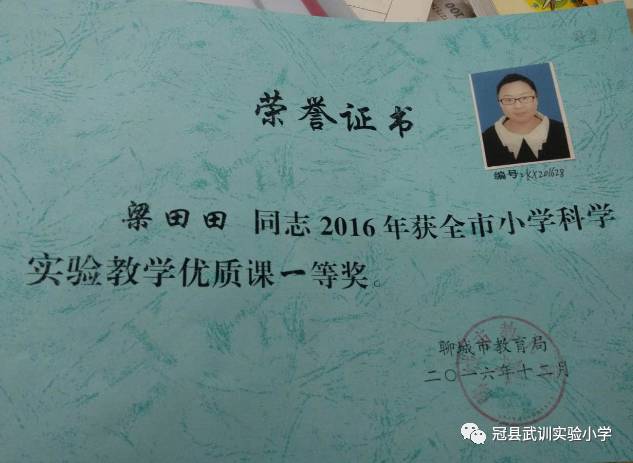 荣誉证书
编号:KX201628
梁田田 同志2016年获全市小学科学
实验教学优质课一等奖。
聊城市教育局
二〇一六年十二月
冠县武训实验小学